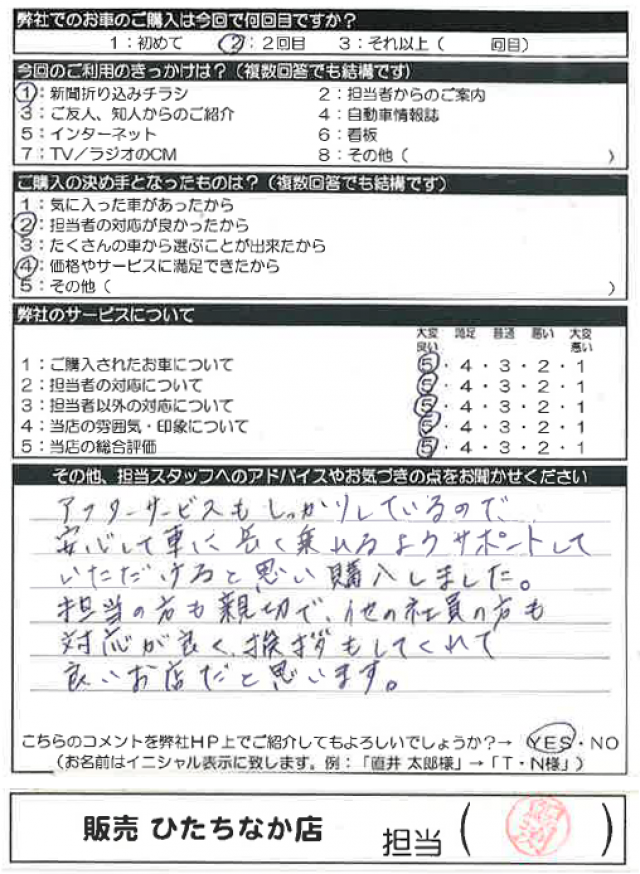 弊社でのお車のご購入は今回で何回目ですか？
1：初めて ②：2回目 3：それ以上（ 回目）
今回のご利用のきっかけは？（複数回答でも結構です）
①：新聞折り込みチラシ 2：担当者からのご案内
3：ご友人、知人からのご紹介 4：自動車情報誌
5：インターネット 6：看板
7：TV／ラジオのCM 8：その他（ ）
ご購入の決め手となったものは？（複数回答でも結構です）
1：気に入った車があったから
②：担当者の対応が良かったから
3：たくさんの車から選ぶことが出来たから
④：価格やサービスに満足できたから
5：その他（ ）
弊社のサービスについて
大変良い 満足 普通 悪い 大変悪い
1：ご購入されたお車について ⑤・4・3・2・1
2：担当者の対応について ⑤・4・3・2・1
3：担当者以外の対応について ⑤・4・3・2・1
4：当店の雰囲気・印象について ⑤・4・3・2・1
5：当店の総合評価 ⑤・4・3・2・1
その他、担当スタッフへのアドバイスやお気づきの点をお聞かせください
アフターサービスもしっかりしているので
安心して車に長く乗れるようサポートして
いただけると思い購入しました。
担当の方も親切で、他の社員の方も
対応が良く、挨拶もしてくれて
良いお店だと思います。
こちらのコメントを弊社HP上でご紹介してもよろしいでしょうか？→ YES・NO
（お名前はイニシャル表示に致します。例：「直井 太郎様」→「T・N様」）
販売 ひたちなか店 担当（ ）